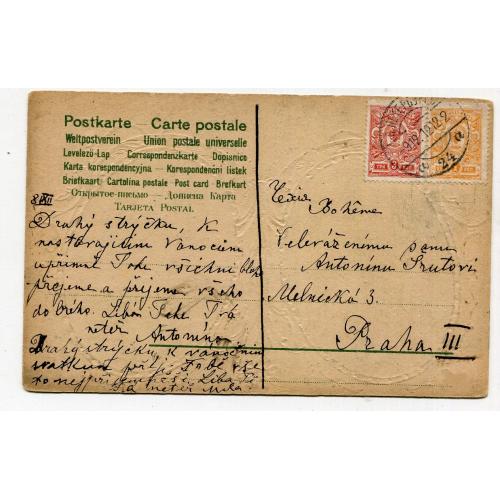 Postkarte – Carte postale
Weltpostverein Union postale universelle
Levelező-Lap Correspondenzkarte Dopisnice
Karta korespondencyjna – Korespondenční listek
Briefkaart – Cartolina postale – Post card – Brefkort
Открытое-письмо – Дописна Карта
Tarjeta Postal
8/XII
Drahý strýčku, K
nastávajícím Vánocům
upřímně Tobě všichni
přejeme a přejeme všeho
dobrého. Líbá Tebe Tvá
neteř Antonína
Drahý strýčku, k vánočním
svátkům přeji Tobě vše
to nejpříjemnější. Líbá Tě
Tvá neteř Mila
Bohême
Velevaženému panu
Antonínu Srutovi
Melnická 3.
Praha III
24